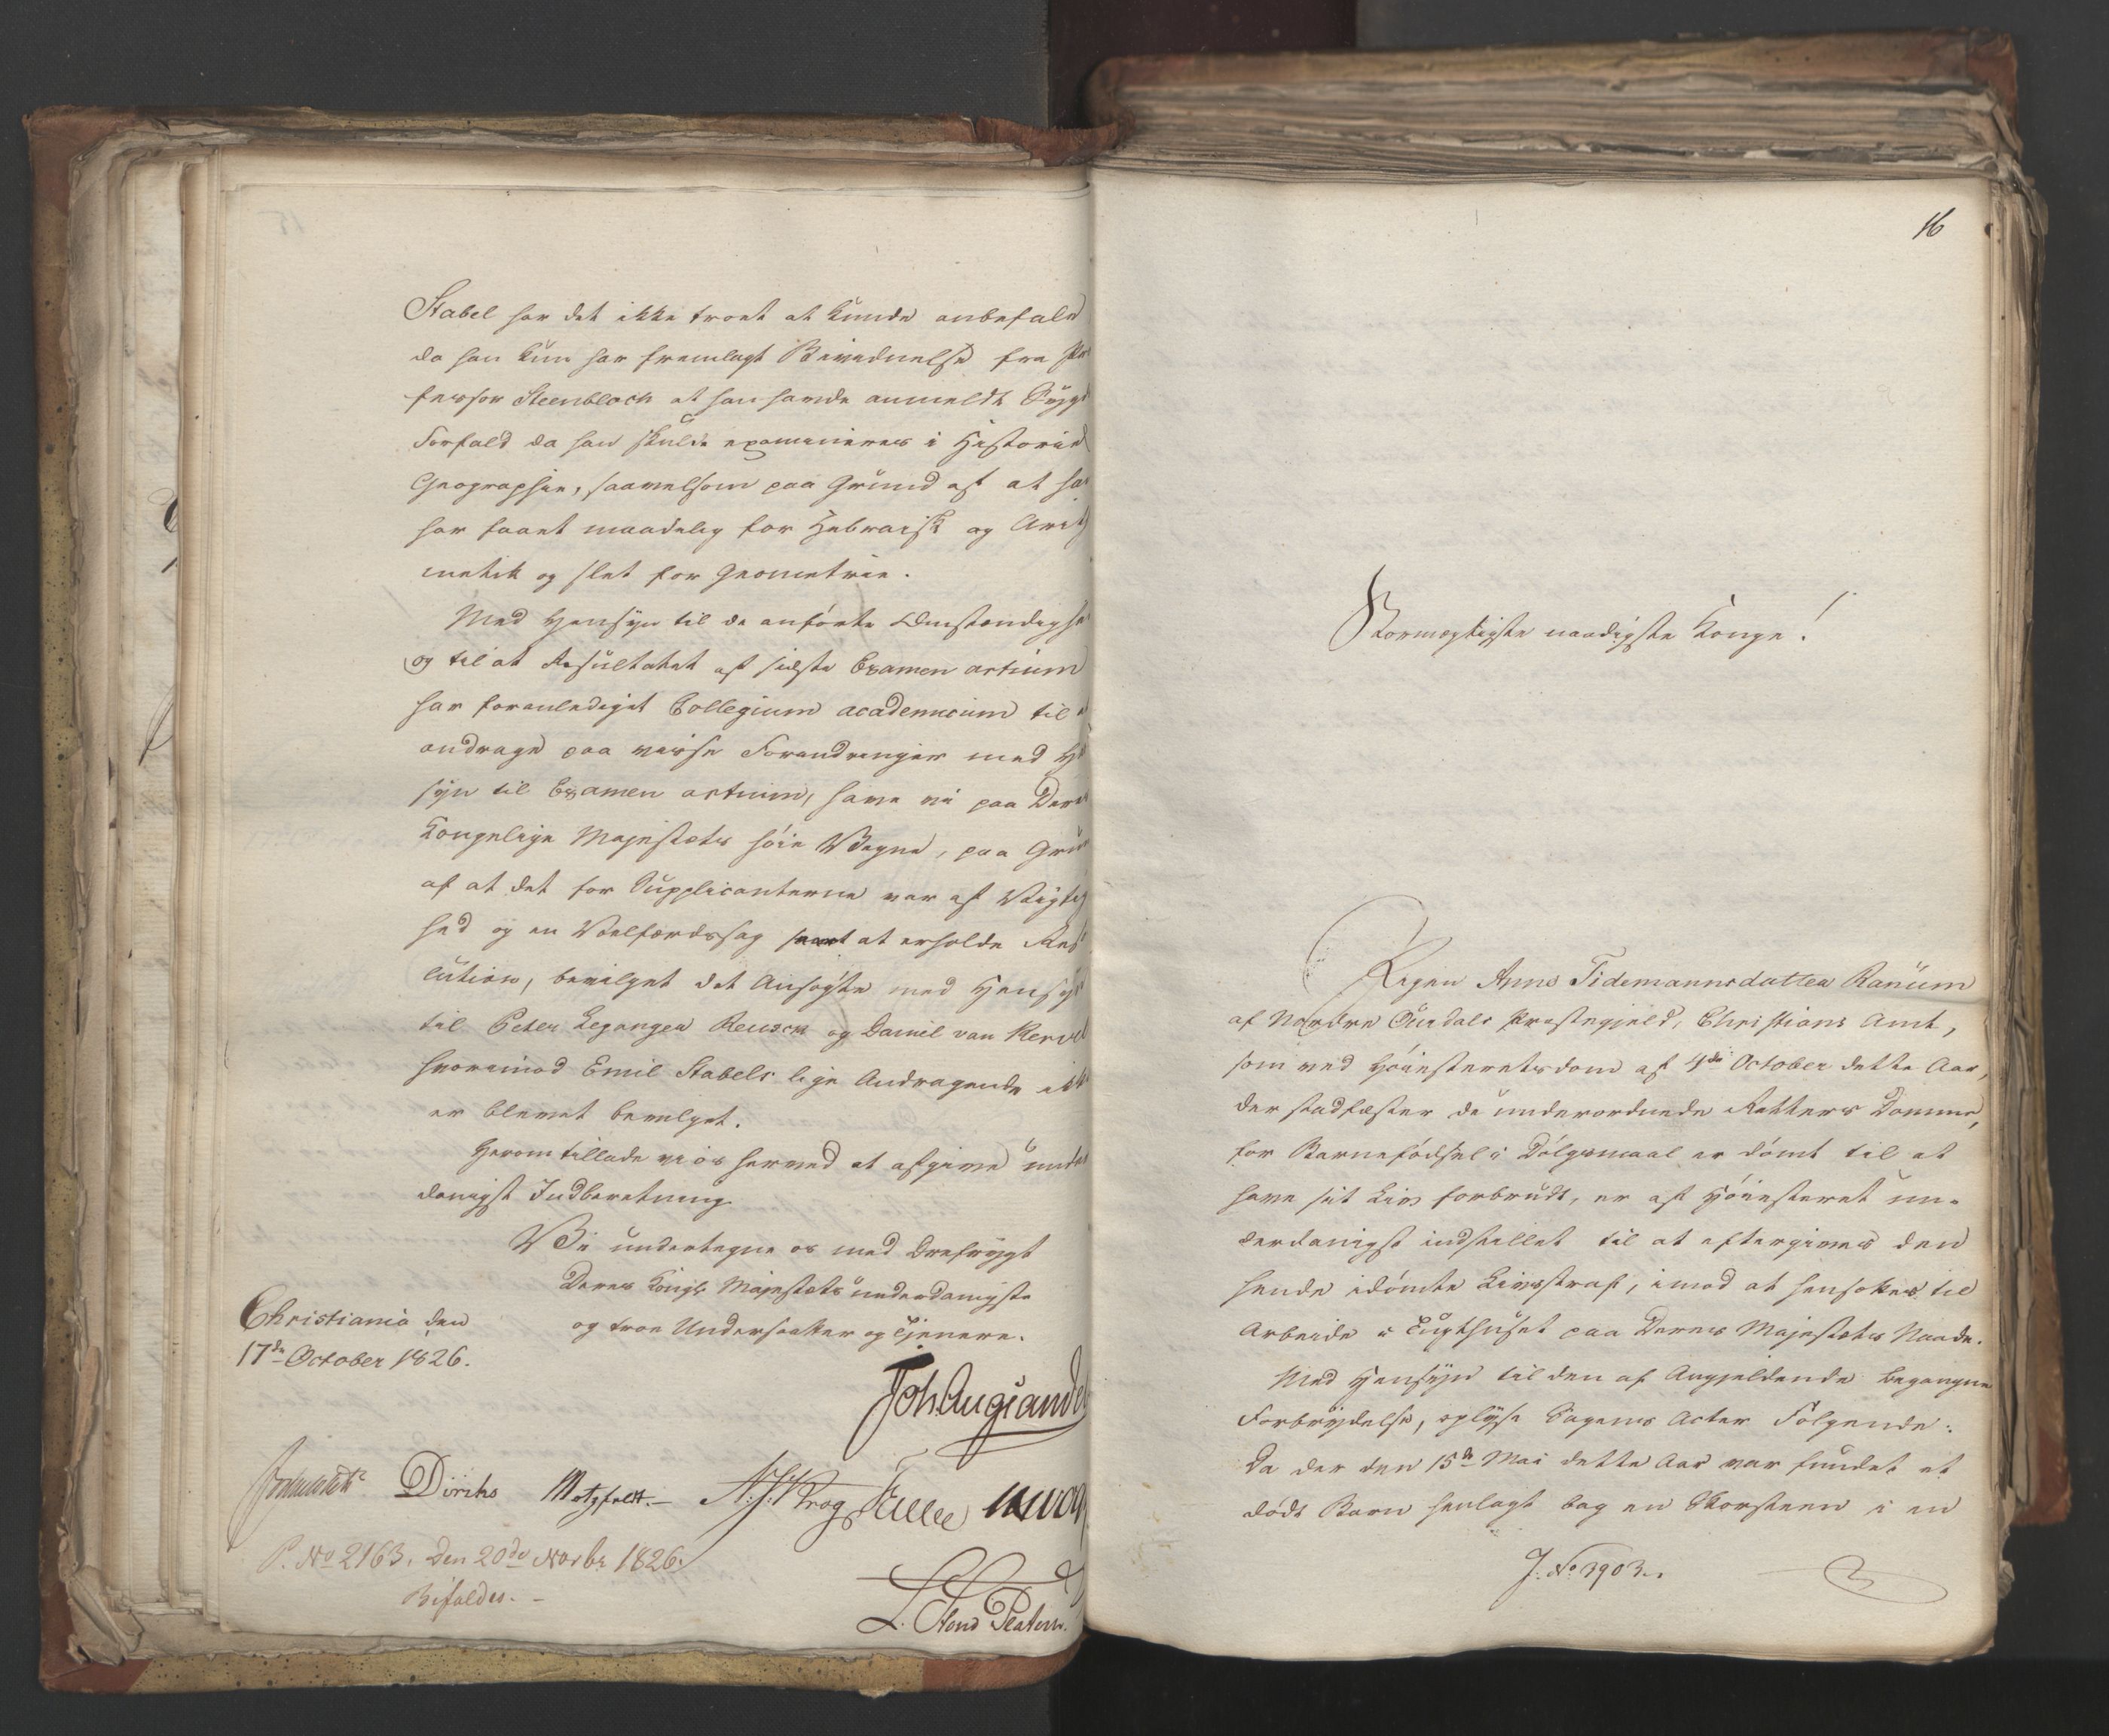 Stabel har det ikke troet at kunde anbefale
da han kun har fremlagt Bevidnelse fra Pro
fessor Steenbloch at han havde anmeldt Sygd
Forfald da han skulde examineres i Historie
Geographie, saavelsom paa Grund af at ha
har faaet maadelig for Hebraisk og Arith
metik og slet for Geometrie.
Med Hensyn til de anförte Omstændighe
og til at Resultatet af sidste Examen artium
har foranlediget Collegium academicum til a
andrage paa visse Forandringer med He
syn til Examen artium, have vi paa Dere
Kongelige Majestæts höie Vegne, paa Grun
af at det for Supplicanterne var af Vigtig
hed og en Velfærdssag at erholde Reso
lution, bevilget det Ansögte med Hensyn
til Peter Leganger Reusch og Daniel van Kervel
hvorimod Emil Stabels lige Andragende ikke
er blevet bevilget.
Herom tillade vi os herved at afgive under
danigst Indberetning.
Vi undertegne os med Ærefrygt
Deres Kongl. Majestæts underdanigste
og troe Undersaatter og Tjenere.
Christiania den
17de October 1826.
Joh. Aug. Sande
Diriks Motzfeldt.- A. J. Krog
P. No 2163, den 20de Novbr 1826.
Bifaldes. -
L. Platou.
16
Stormægtigste naadigste Konge!
Pigen Anne Tidemannsdatter Ranum
af Nordre Ourdals Præstegjeld, Christians Amt,
som ved Höiesteretsdom af 4de October dette Aar,
der stadfæster de underordnede Retters Domme,
for Barnefödsel i Dölgsmaal er dömt til at
have sit Liv forbrudt, er af Höiesteret un-
derdanigst indstillet til at eftergives den
hende idömte Livsstraf, imod at hensættes til
Arbeide i Tugthuset paa Deres Majestæts Naade.
Med Hensyn til den af Angjeldende begangne
Forbrydelse, oplyse Sagens Acter Fölgende:
Da der den 15de Mai dette Aar var fundet et
dödt Barn henlagt bag en Skorsteen i en
J. No. 3903..